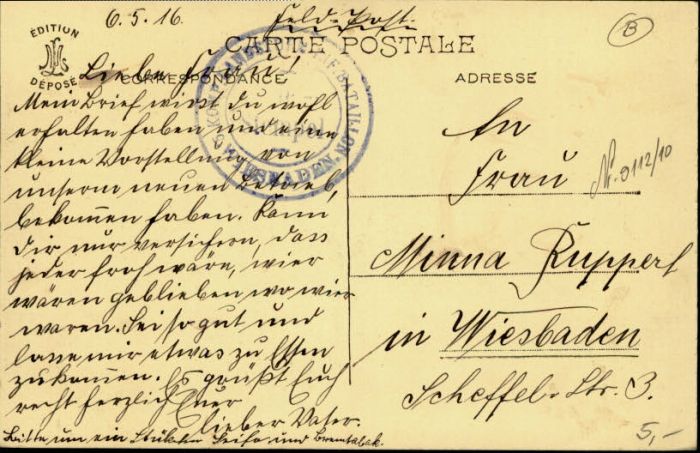 6.5.16. Feld-Post.
ÉDITION
DÉPOSÉ
CARTE POSTALE
CORRESPONDANCE
ADRESSE
Liebe Frau!
Mein Brief wirst du wohl
erhalten haben und eine
kleine Vorstellung von
unserm neuen Betrieb,
bekommen haben. Kann
dir nur versichern, dass
jeder froh wäre, wier
wären geblieben wo wier
waren. Sei so gut und
lasse mir etwas zu Essen
zukommen. Es grüßt Euch
recht herzlich Euer
lieber Vater.
Bitte um ein Stükchen Seife und Brenntabak.
BATAILLON
WIESBADEN
An
Frau
Minna Ruppert
in Wiesbaden
Scheffel-Str. 3.
B
Nr. 9112/10
5,-